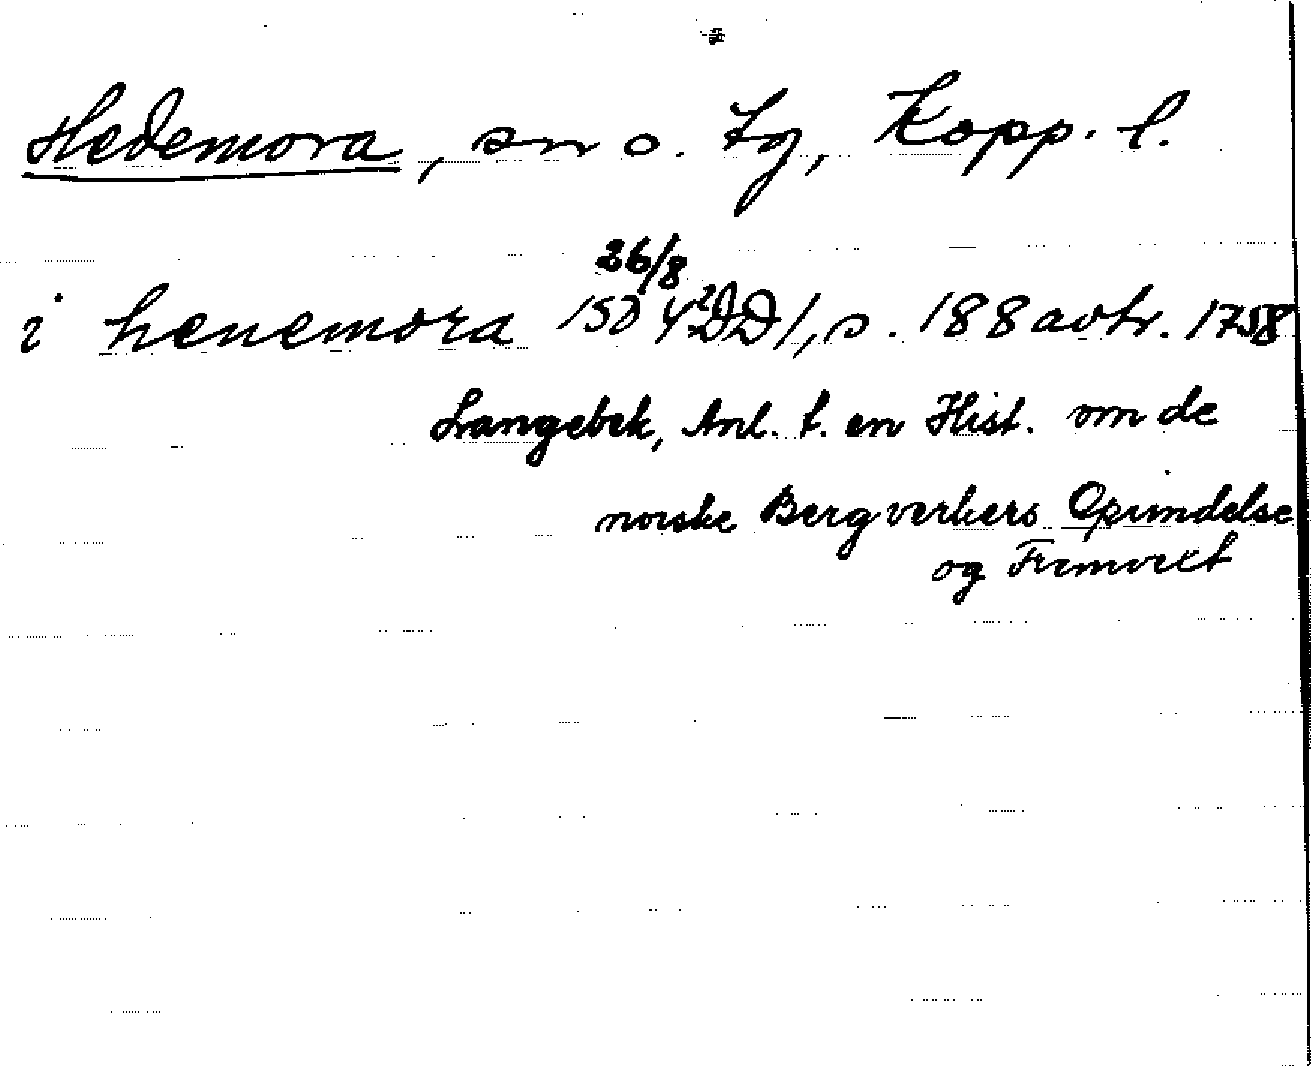 Hedemora, sn o. tg, Kopp. l.
26/8
i henemora 1504 2DD1, s. 188 avtr. 1758
Langebek, Anl. t. en Hist. om de
norske Bergverkers Oprindelse
og Fremvext